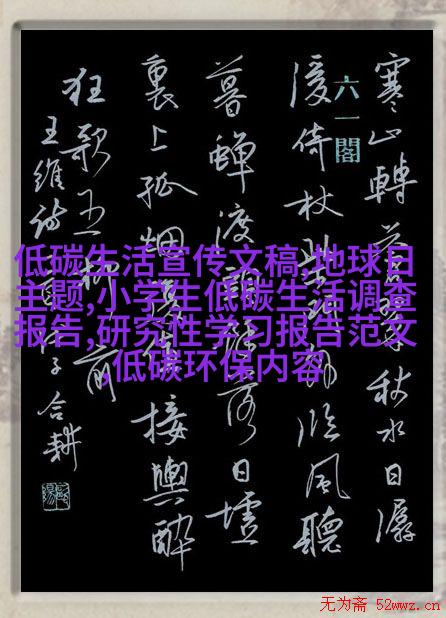 寒山轉蒼翠秋水日潺
湲倚杖柴門外臨風聽
暮蟬渡頭餘落日墟
裏上孤烟復值接輿醉
狂歌五柳前
王維詩
子合耕
六一閣
低碳生活宣传文稿,地球日
主题,小学生低碳生活调查
报告,研究性学习报告范文
,低碳环保内容
无为斋 52wwz.cn